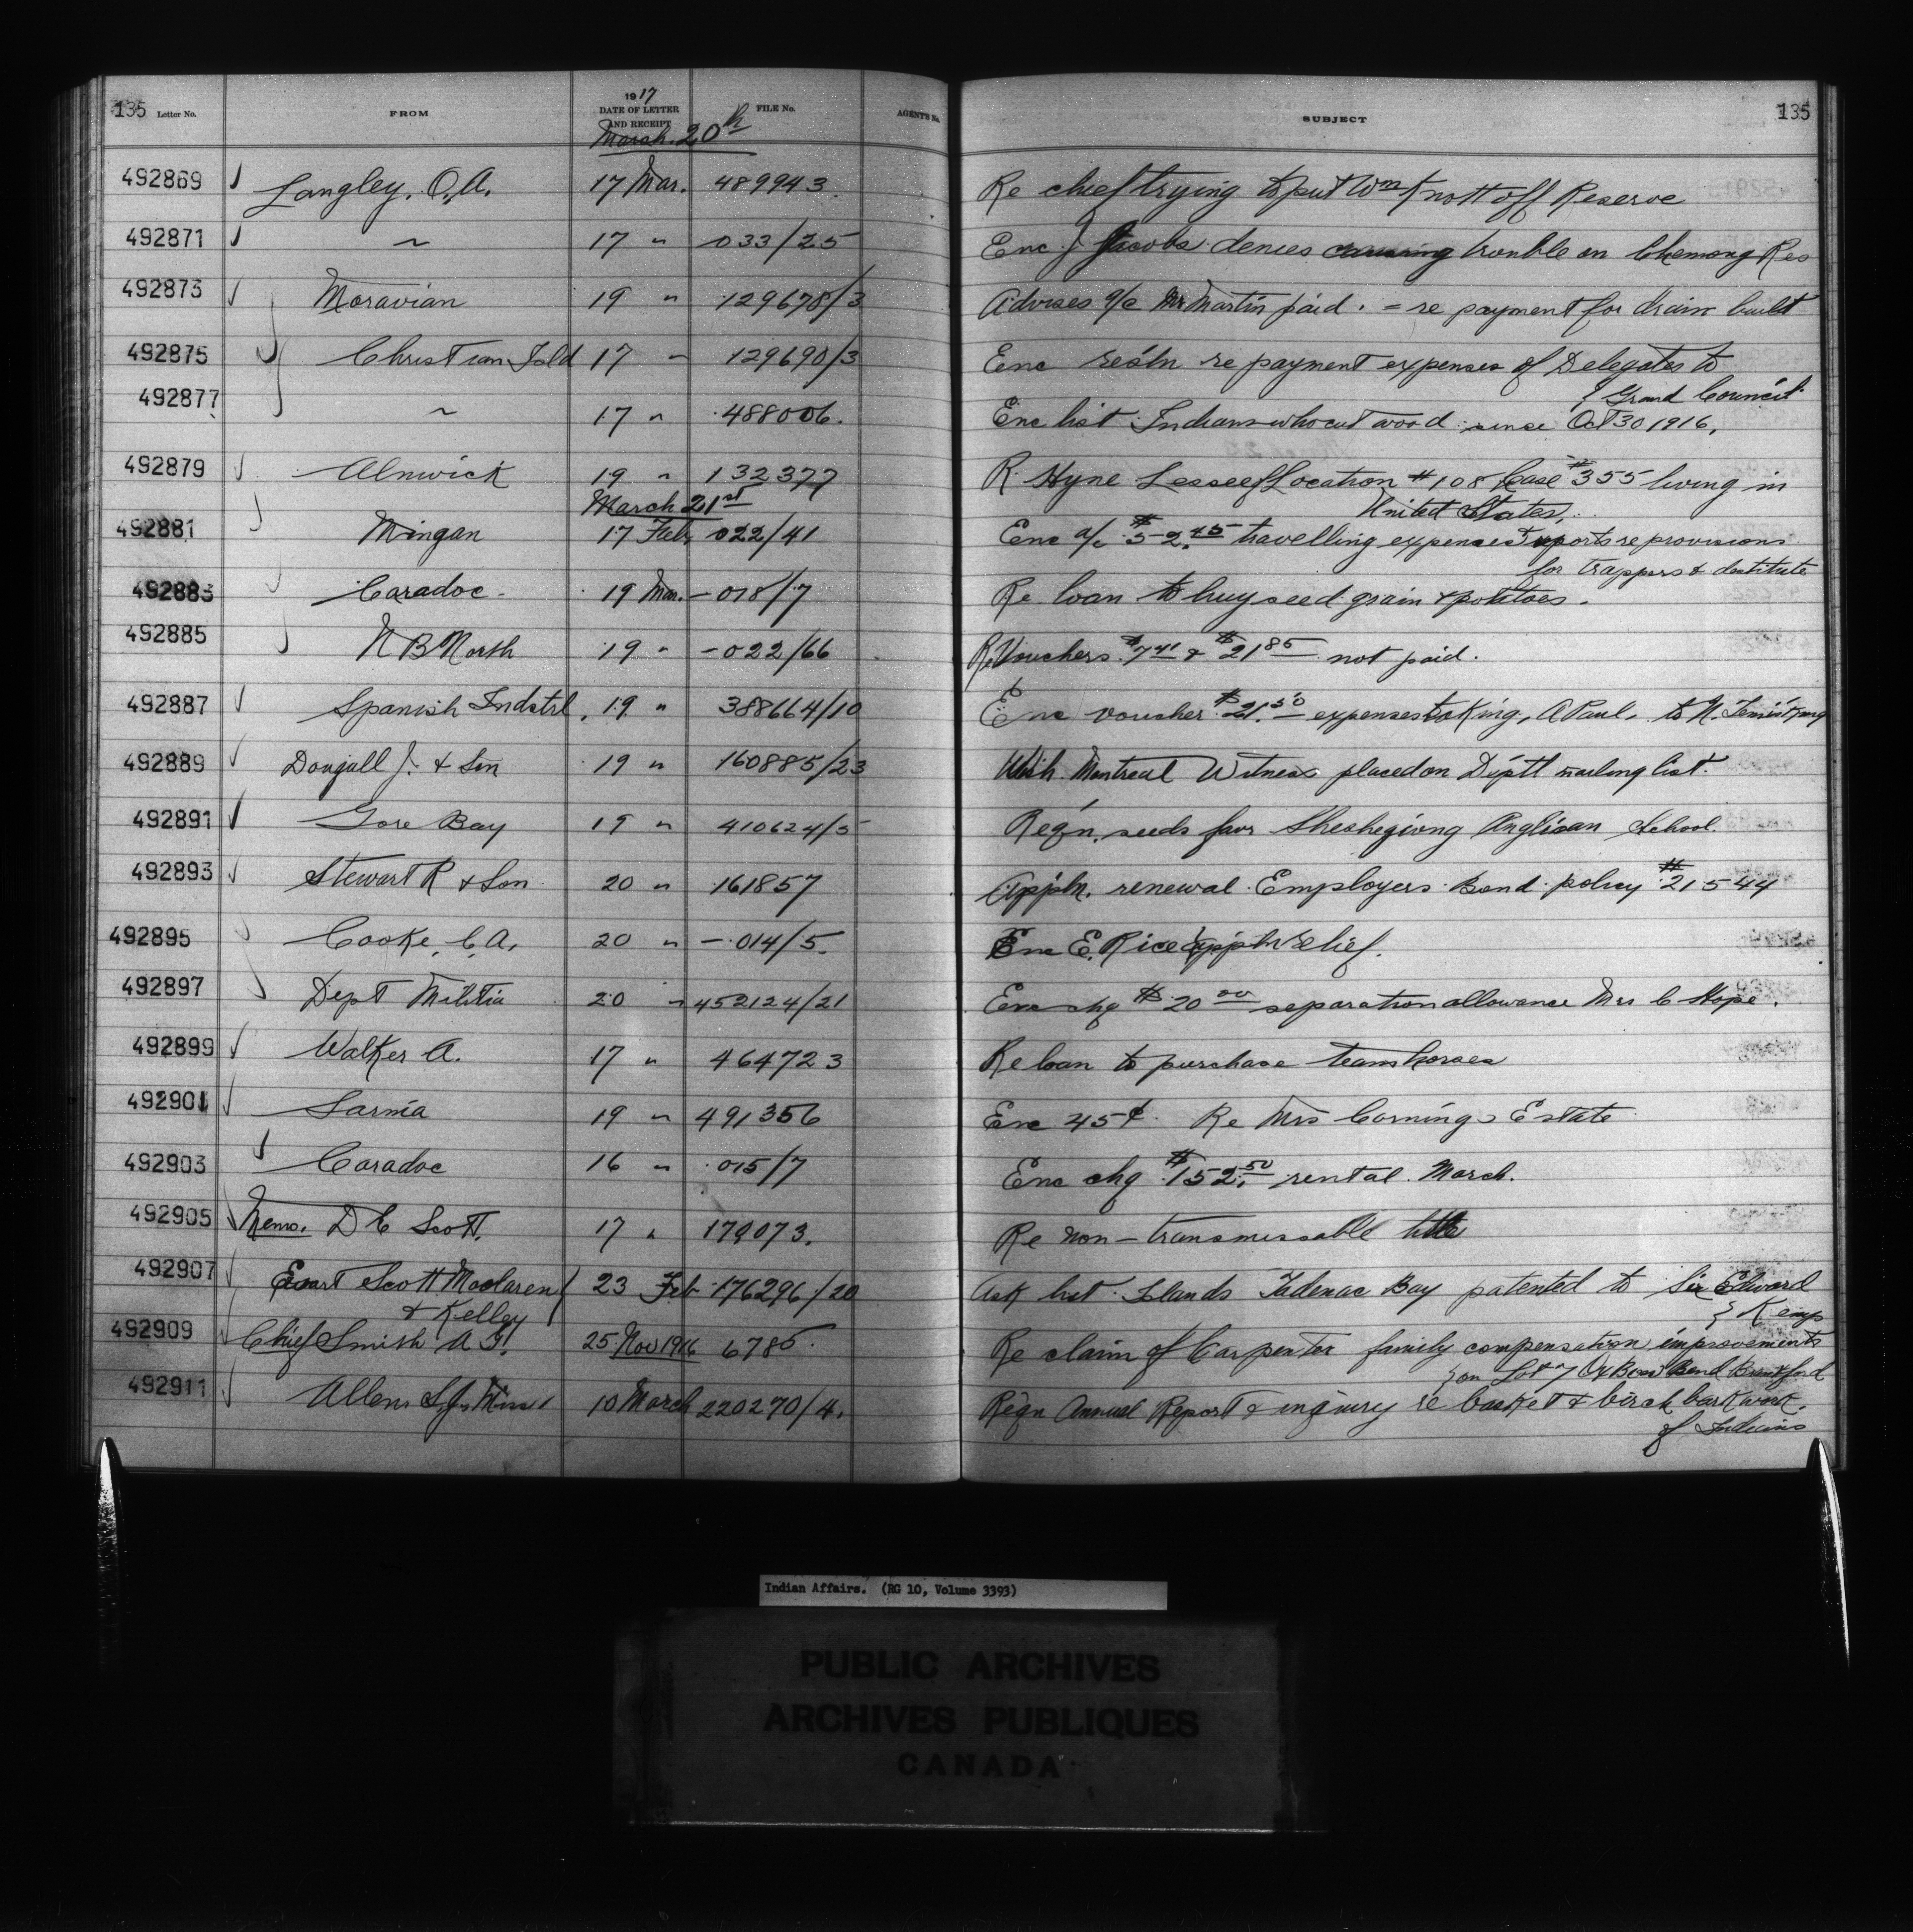 135 Letter No. FROM 1917 DATE OF LETTER AND RECEIPT FILE No. AGENT'S No. SUBJECT 135
March 20th
492869 Langley, O.A. 17 Mar. 489943 Re chief trying to put Wm Knott off Reserve
492871 " 17 " 033/25 Enc J Jacobs denies causing trouble on Chemong Res
492873 Moravian 19 " 129678/3 Advises a/c Mr Martin paid. = re payment for drain built
492875 Christian Isld 17 " 129690/3 Enc resln re payment expenses of Delegates to
Grand Council
492877 " 17 " 488006. Enc list Indians who cut wood since Oct 30 1916.
492879 Alnwick 19 " 132377 R. Hyne Lessee of Location #108 Lease #355 living in
United States.
March 21st
492881 Mingan 17 Feb. 022/41 Enc a/c $52.45 travelling expenses & reports re provisions
for trappers & destitute
492883 Caradoc 19 Mar. 018/7 Re loan to buy seed grain & potatoes.
492885 N B North 19 " 022/66 Re Vouchers $7.41 & $21.85 not paid.
492887 Spanish Indstrl. 19 " 388664/10 Enc voucher $21.50 expenses taking, A Paul, to N.
492889 Dougall J. & Son 19 " 160885/23 Wish Montreal Witness placed on Dep'tt mailing list.
492891 Gore Bay 19 " 410624/5 Req'n. seeds favr Sheshegiong Anglican School.
492893 Stewart R & Son 20 " 161857 Appln. renewal Employers Bond policy #21544
492895 Cooke, C. A. 20 " 014/5. Enc E. Rice appln relief.
492897 Dept Militia 20 " 452124/21 Enc chq $20.00 separation allowance Mrs C Hope.
492899 Walker A. 17 " 464723 Re loan to purchase team horses
492901 Sarnia 19 " 491356 Enc 45¢ Re Mrs Cornings Estate
492903 Caradoc 16 " 015/7 Enc chq $152.50 rental March.
492905 Memo. D C Scott. 17 " 179073. Re non-transmissable title
492907 Ewart Scott Maclaren 23 Feb 176296/20 Ask list Islands Tadenac Bay patented to Sir Edward
& Kelley Kemp
492909 Chief Smith A G. 25 Nov 1916 6785 Re claim of Carpenter family compensation improvements
on Lot 7 Ox Bow Bend Brantford
492911 Allen S.J. Miss 10 March 220270/4. Reqn Annual Report & inquiry re basket & birch bark work.
of Indians
Indian Affairs. (RG 10, Volume 3393)
PUBLIC ARCHIVES
ARCHIVES PUBLIQUES
CANADA